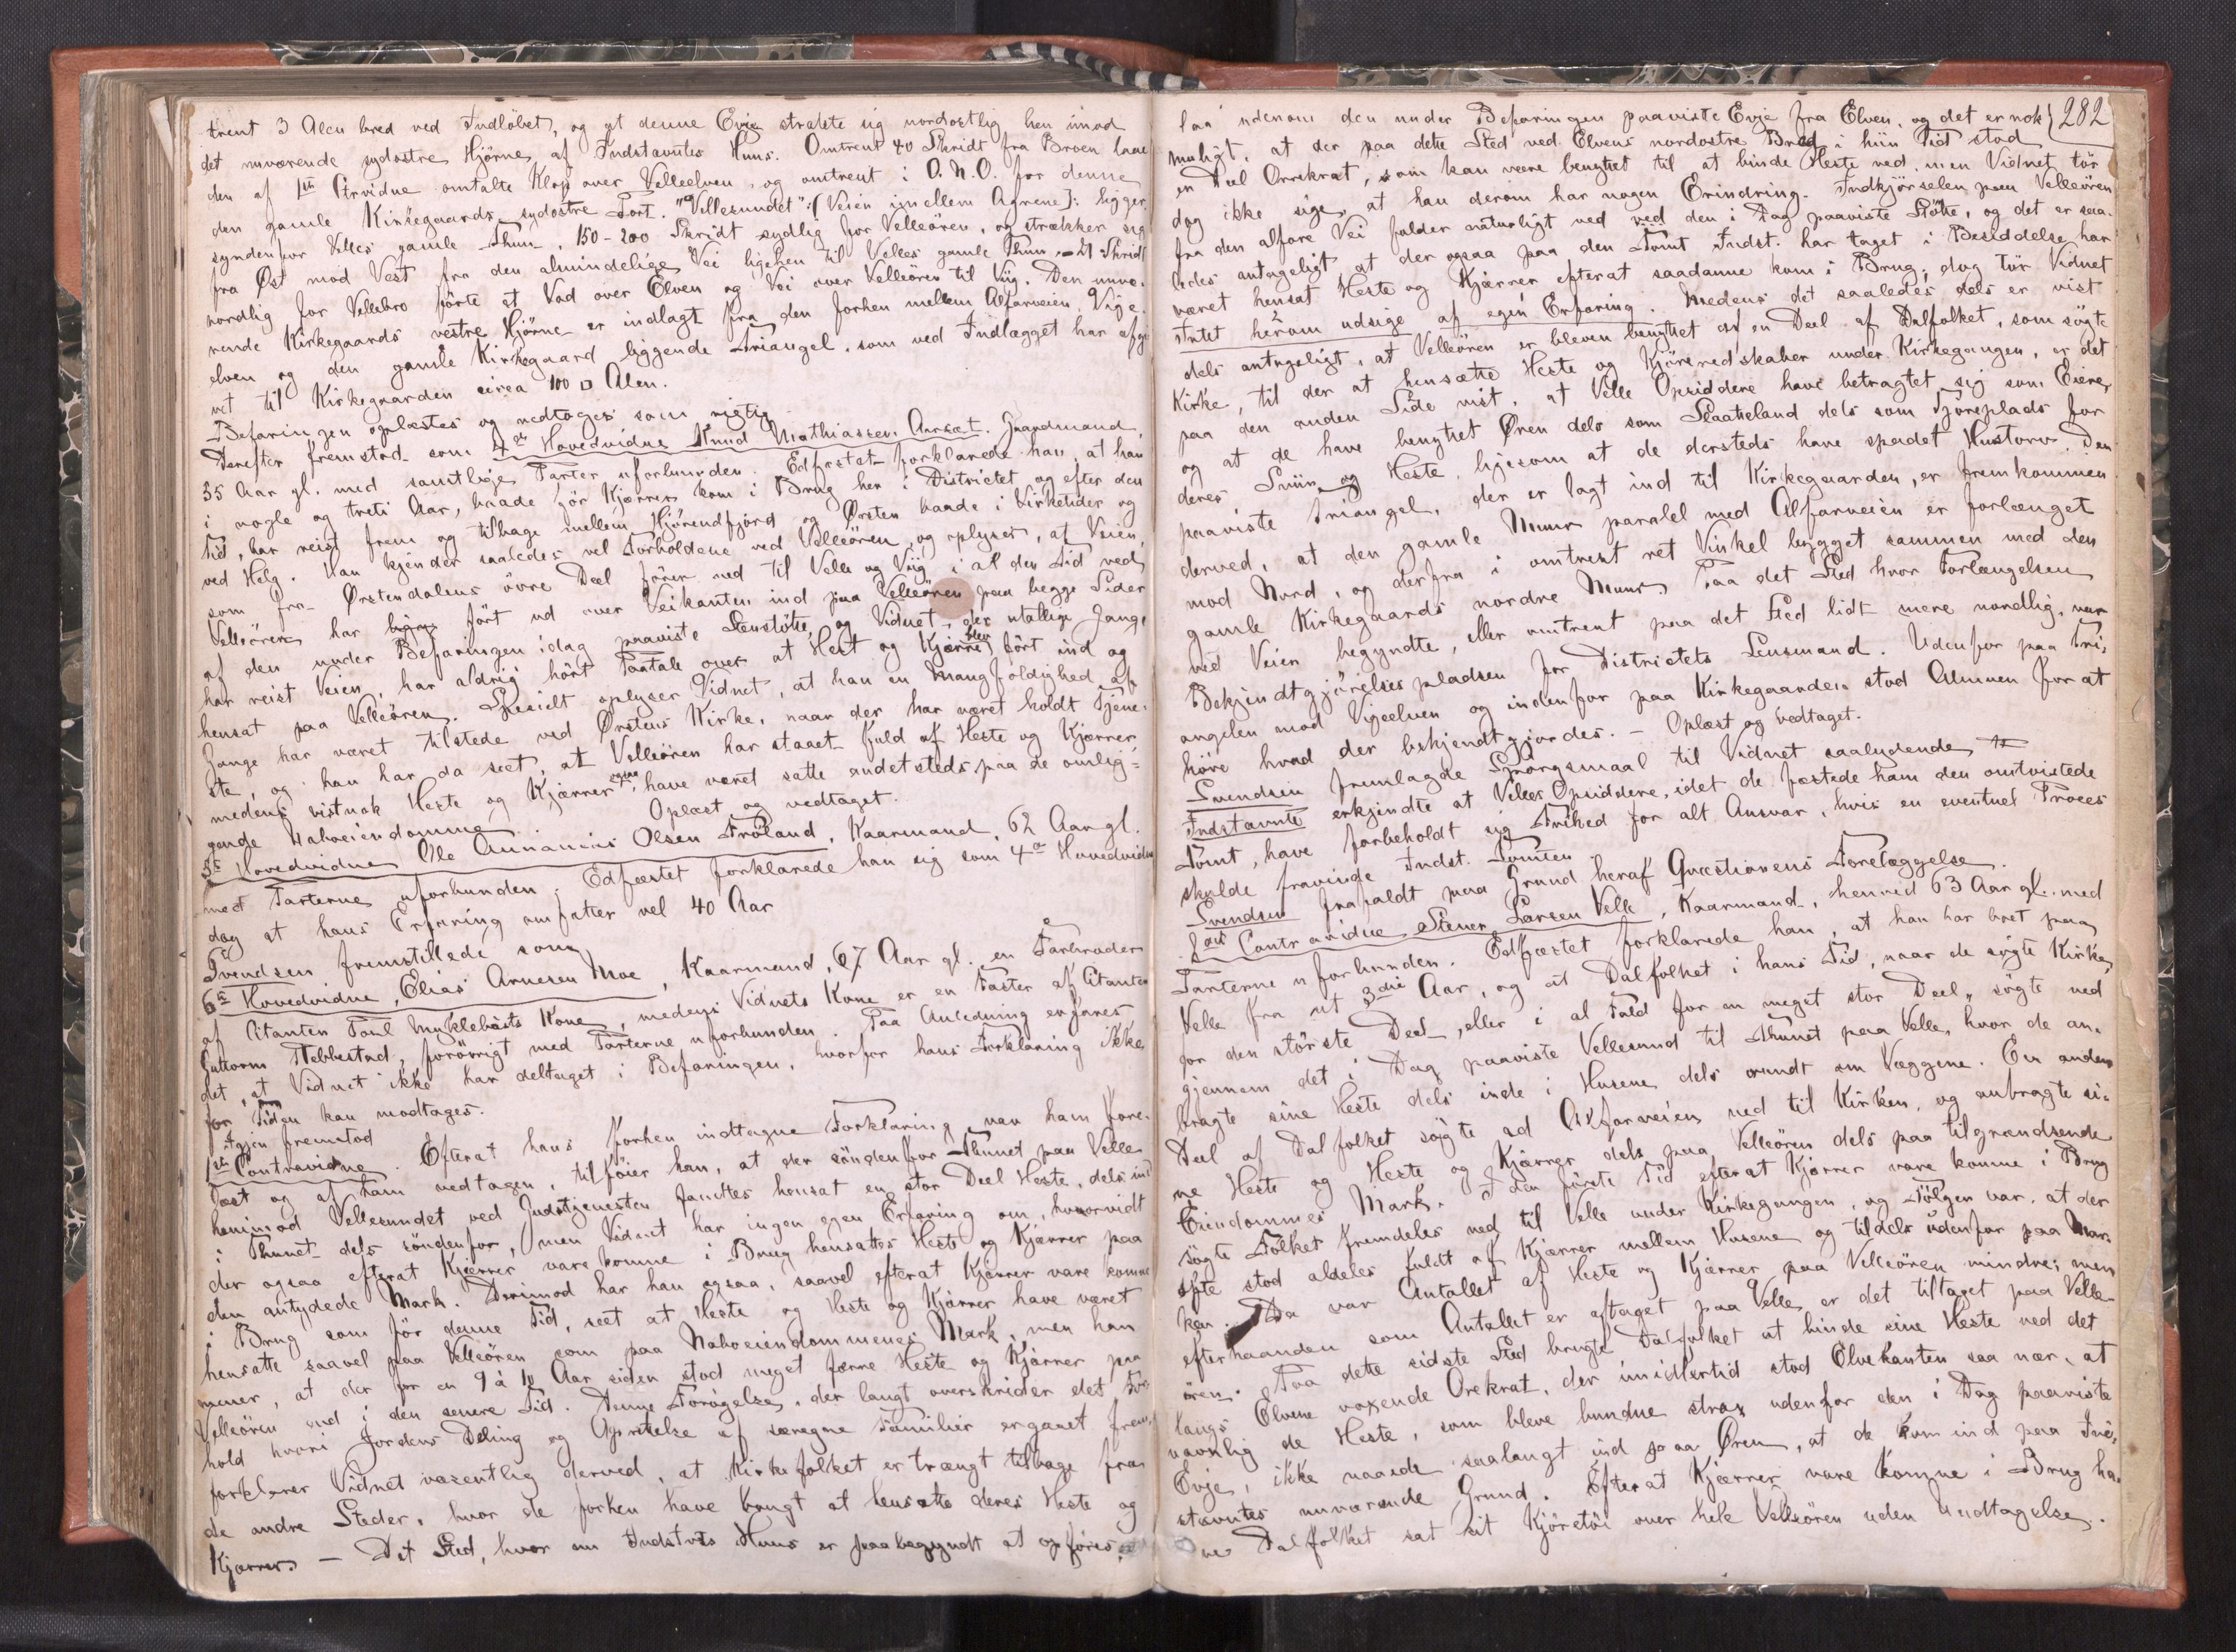 trent 3 Alen bred ved Indløbet, og at denne Evje strakte sig nordostlig hen imod
det nuværende sydostre Hjørne af Indstævntes Huus. Omtrent 40 Skridt fra Broen laae
den af 1ste Ctrvidne omtalte Klop over Velleelven, og omtrent i O.N.O. for denne
den gamle Kirkegaards sydostre Port. "Vellesundet" :/ Veien imellem Agrene /: ligger
syndenfor Velles gamle Thun, 150-200 Skridt sydlig for Velleören, og strækker sig
fra Øst mod Vest fra den almindelige Vei ligehen til Velles gamle Thun. - Skridt
nordlig for Vellebro förte et Vad over Elven og Vei over Velleören til Viig. Den nuvæ-
rende Kirkegaards vestre Hjörne er indlagt fra den forhen mellem Alfarveien, Vige-
elven og den gamle Kirkegaard liggende Triangel, som ved Indlægget har afgi-
vet til Kirkegaarden circa 100 □ Alen.
Befaringen oplæstes og vedtoges som rigtig.
Derefter fremstod som 4de Hovedvidne Knud Mathiassen Aarsæt, Gaardmand,
35 Aar gl. med samtlige Parter uforbunden. Edfæstet forklarede han, at han
i nogle og treti Aar, baade för Kjærrer kom i Brug her i Districtet og efter den
Tid, har reist frem og tilbage mellem Hjörendfjord og Ørsten baade i Virketider og
ved Helg. Han kjender saaledes vel Forholdene ved Velleören, og oplyser, at Veien,
som fra Ørstendalens övre Deel förer ned til Velle og Viig i al den Tid ved
Velleören har fört ud over Veikanten ind paa Velleören paa begge Sider
af den under Befaringen idag paaviste Steenstötte, og Vidnet, der utallige Gange
har reist Veien, har aldrig hört Paatale over at Hest og Kjærre blev fört ind og
hensat paa Velleören. Specielt oplyser Vidnet, at han en Mangfoldighed af
Gange har været tilstede ved Ørstens Kirke, naar der har været holdt Tjene-
ste, og han har da seet, at Velleören har staaet fuld af Heste og Kjærrer
medens vistnok Heste og Kjærrer ogsaa have været satte andetsteds paa de omlig-
gende Naboeiendomme. Oplæst og vedtaget.
5te Hovedvidne Ole Annanias Olsen Fröland, Kaarmand, 62 Aar gl.
med Parterne uforbunden. Edfæstet forklarede han sig som 4de Hovedvidne
dog at hans Erfaring omfatter vel 40 Aar
Svendsen fremstillede som
6te Hovedvidne, Elias Arnesen Moe, Kaarmand, 67 Aar gl. en Farbroder
af Citanten Poul Myklebusts Kone, medens Vidnets Kone er en Faster af Citanten
Guttorm Steb­bestad, forövrigt med Parterne uforbunden. Paa Anledning erfares
det, at Vidnet ikke har deltaget i Befaringen, hvorfor hans Forklaring ikke
for Tiden kan modtages.
Igjen fremstod
1ste Contravidne. Efterat hans forhen indtagne Forklaring var ham fore-
læst og af ham vedtagen, tilföier han, at der söndenfor Thunet paa Velle
henimod Vellesundet ved Gudstjenesten fandtes hensat en stor Deel Heste, dels ind
i Thunet dels söndenfor, men Vidnet har ingen egen Erfaring om, hvorvidt
der ogsaa efterat Kjærrer vare komne i Brug hensattes Heste og Kjærrer paa
den antydede Mark. Derimod har han ogsaa, saavel efterat Kjærrer vare komne
i Brug som för denne Tid, seet at Heste og Heste og Kjærrer have været
hensatte saavel paa Velleören som paa Naboeiendommenes Mark, men han
mener, at der for en 9 à 10 Aar siden stod meget færre Heste og Kjærrer paa
Velleören end i den senere Tid. Denne Forögelse, der langt overskrider det For-
hold hvori Jordens Deling og Oprettelse af særegne Familier ergaaet frem
forklarer Vidnet væsentlig derved, at Kirkefolket er trængt tilbage fra
de andre Steder, hvor de forhen have brugt at hensætte deres Heste og
Kjærrer. - Det Sted, hvor nu Indstvtes Huus er paabegyndt at opföres,
282
laa udenom den under Befaringen paaviste Evje fra Elven, og det er nok
muligt, at der paa dette Sted ved Elvens nordostre Bred i hiin Tid stod
en Deel Orrekrat, som kan være benyttet til at binde Heste ved, men Vidnet tör
dog ikke sige, at han derom har nogen Erindring. Indkjörselen paa Velleören
fra den alfare Vei falder naturligt ved ved den i Dag paaviste Stötte, og det er saa-
ledes antageligt at der ogsaa paa den Tomt Indst. har taget i Besiddelse har
været hensat Heste og Kjærrer efterat saadanne kom i Brug; dog tör Vidnet
Intet herom udsige af egen Erfaring. Medens det saaledes dels er vist
dels antageligt, at Velleören er bleven benyttet af en Deel af Dalfolket, som sögte
Kirke, til der at hensætte Heste og Kjöreredskaber under Kirkegangen, er det
paa den anden Side vist, at Velle Opsiddere have betragtet sig som Eiere,
og at de have benyttet Øren dels som Slaatteland dels som Tjöreplads for
deres Sviin og Heste, ligesom at de dersteds have spadet Hustorv. Den
paaviste Triangel, der er lagt ind til Kirkegaarden, er fremkommen
derved, at den gamle Muur paralel med Alfarveien er forlænget
mod Nord, og derfra i omtrent ret Vinkel bygget sammen med den
gamle Kirkegaards nordre Muur. Paa det Sted hvor Forlængelsen
ved Veien begyndte, eller omtrent paa det Sted lidt mere nordlig, var
Bekjendtgjörelsespladsen for Districtets Lensmand. Udenfor paa Tri-
angelen mod Vigeelven og indenfor paa Kirkegaarden stod Almuen for at
höre hvad der bekjendtgjordes. - Oplæst og vedtaget.
Svendsen fremlagde Spörgsmaal til Vidnet saalydende
Indstævnte erkjendte at Velles Opsiddere, idet de fæstede ham den omtvistede
Tomt, have forbeholdt sig Frihed for alt Ansvar, hvis en eventuel Proces
skulde fravinde Indst. Tomten.
Svendsen frafaldt paa Grund heraf Qvæstionens Forelæggelse.
8de Contravidne Stener Larsen Velle, Kaarmand, henved 63 Aar gl. med
Parterne uforbunden. Edfæstet forklarede han, at han har boet paa
Velle fra sit 3die Aar, og at Dalfolket i hans Tid, naar de sögte Kirke,
for den störste Deel, eller i al Fald for en meget stor Deel, sögte ned
gjennem det i Dag paaviste Vellesund til Thunet paa Velle, hvor de an-
bragte sine Heste dels inde i Husene dels rundt om Væggene. En anden
Deel af Dalfolket sögte ad Alfarveien ned til Kirken, og anbragte si-
ne Heste og Heste og Kjærrer dels paa Velleören dels paa tilgrændsende
Eiendommes Mark. I den förste Tid efterat Kjærrer vare komne i Brug
sögte Folket fremdeles ned til Velle under Kirkegangen, og Fölgen var, at der
ofte stod aldeles fuldt af Kjærrer mellem Husene og tildels udenfor paa Mar-
ken. Da var Antallet af Heste og Kjærrer paa Velleören mindre; men
efterhaanden som Antallet er aftaget paa Velle, er det tiltaget paa Velle-
ören. Paa dette sidste Sted brugte Dalfolket at binde sine Heste ved det
langs Elvene voxende Orekrat, der imidlertid stod Elvekanten saa nær, at
navnlig de Heste, som bleve bundne strax udenfor den i Dag paaviste
Evje, ikke naaede saalangt ind paa Øren, at de kom ind paa Ind-
stævntes nuværende Grund. Efterat Kjærrer vare komne i Brug ha-
ve Dalfolket sat sit Kjöretöi over hele Velleören uden Undtagelse.